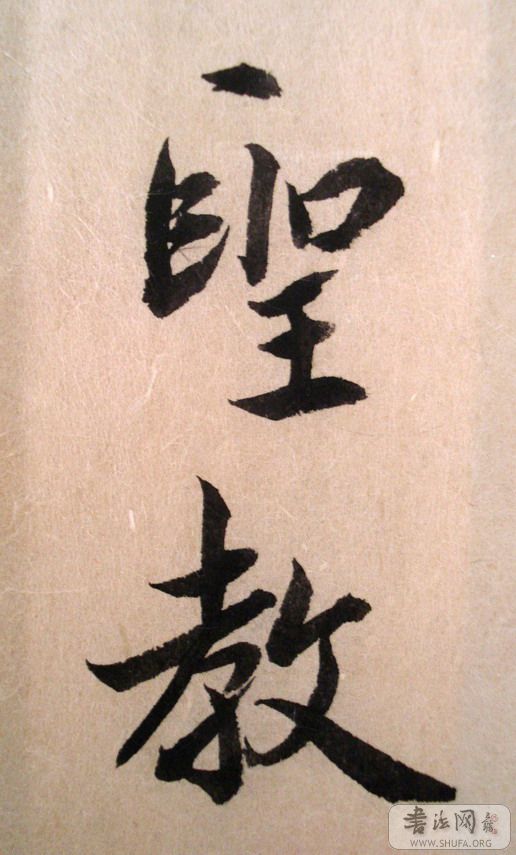 聖教
書法网
WWW.SHUFA.ORG